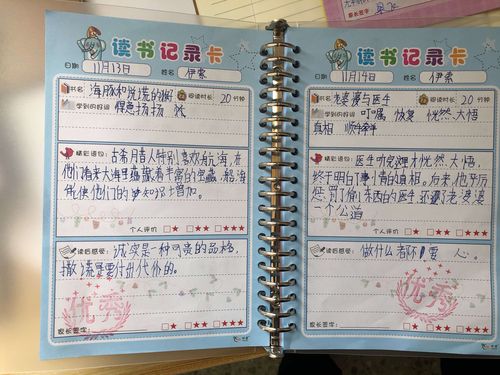 读书记录卡
日期 11月13日 姓名 伊索
书名 海豚和说谎的猴
阅读时长 20分钟
学到的好词 得意扬扬
精彩语句: 古希腊人特别喜欢航海,在
他们看来大海里蕴藏着丰富的宝藏,航海
能使他们的知识增加。
个人评价 ★ ★★ ★★★
读后感想: 诚实是一种可贵的品格,
撒谎是要付出代价的。
优秀
家长评价 ★ ★★ ★★★
读书记录卡
日期 11月14日 姓名 伊索
书名 老婆婆与医生
阅读时长 20分钟
学到的好词 叮嘱 恢复 恍然大悟
真相
精彩语句: 医生听完这才恍然大悟,
终于明白了事情的真相。后来,他严厉
惩罚了偷东西的医生,还了老婆婆
一个公道
个人评价 ★ ★★ ★★★
读后感想: 做什么都不要 心。
优秀
家长评价 ★ ★★ ★★★